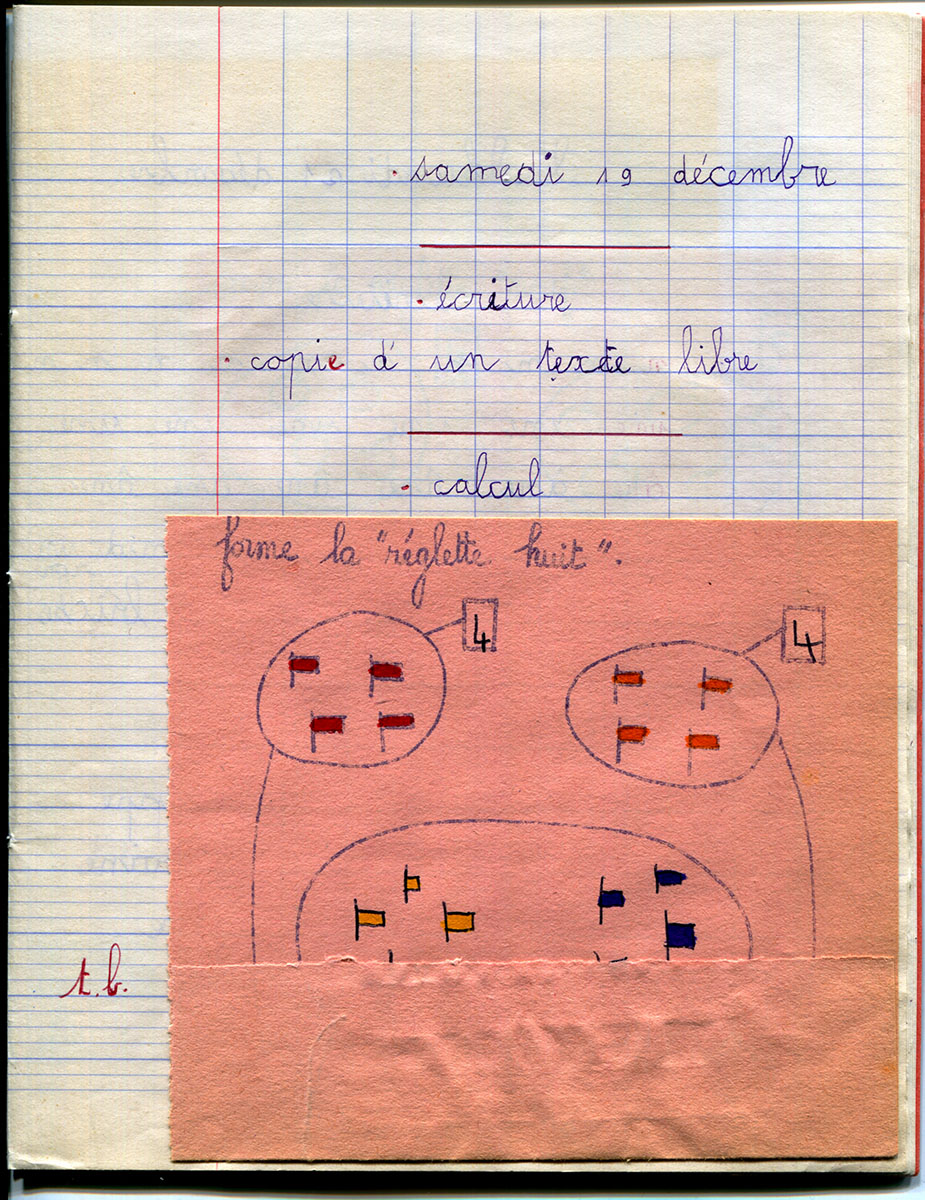 . samedi 19 décembre
. écriture
. copie d'un texte libre
. calcul
forme la "réglette huit".
4 4
t.b.